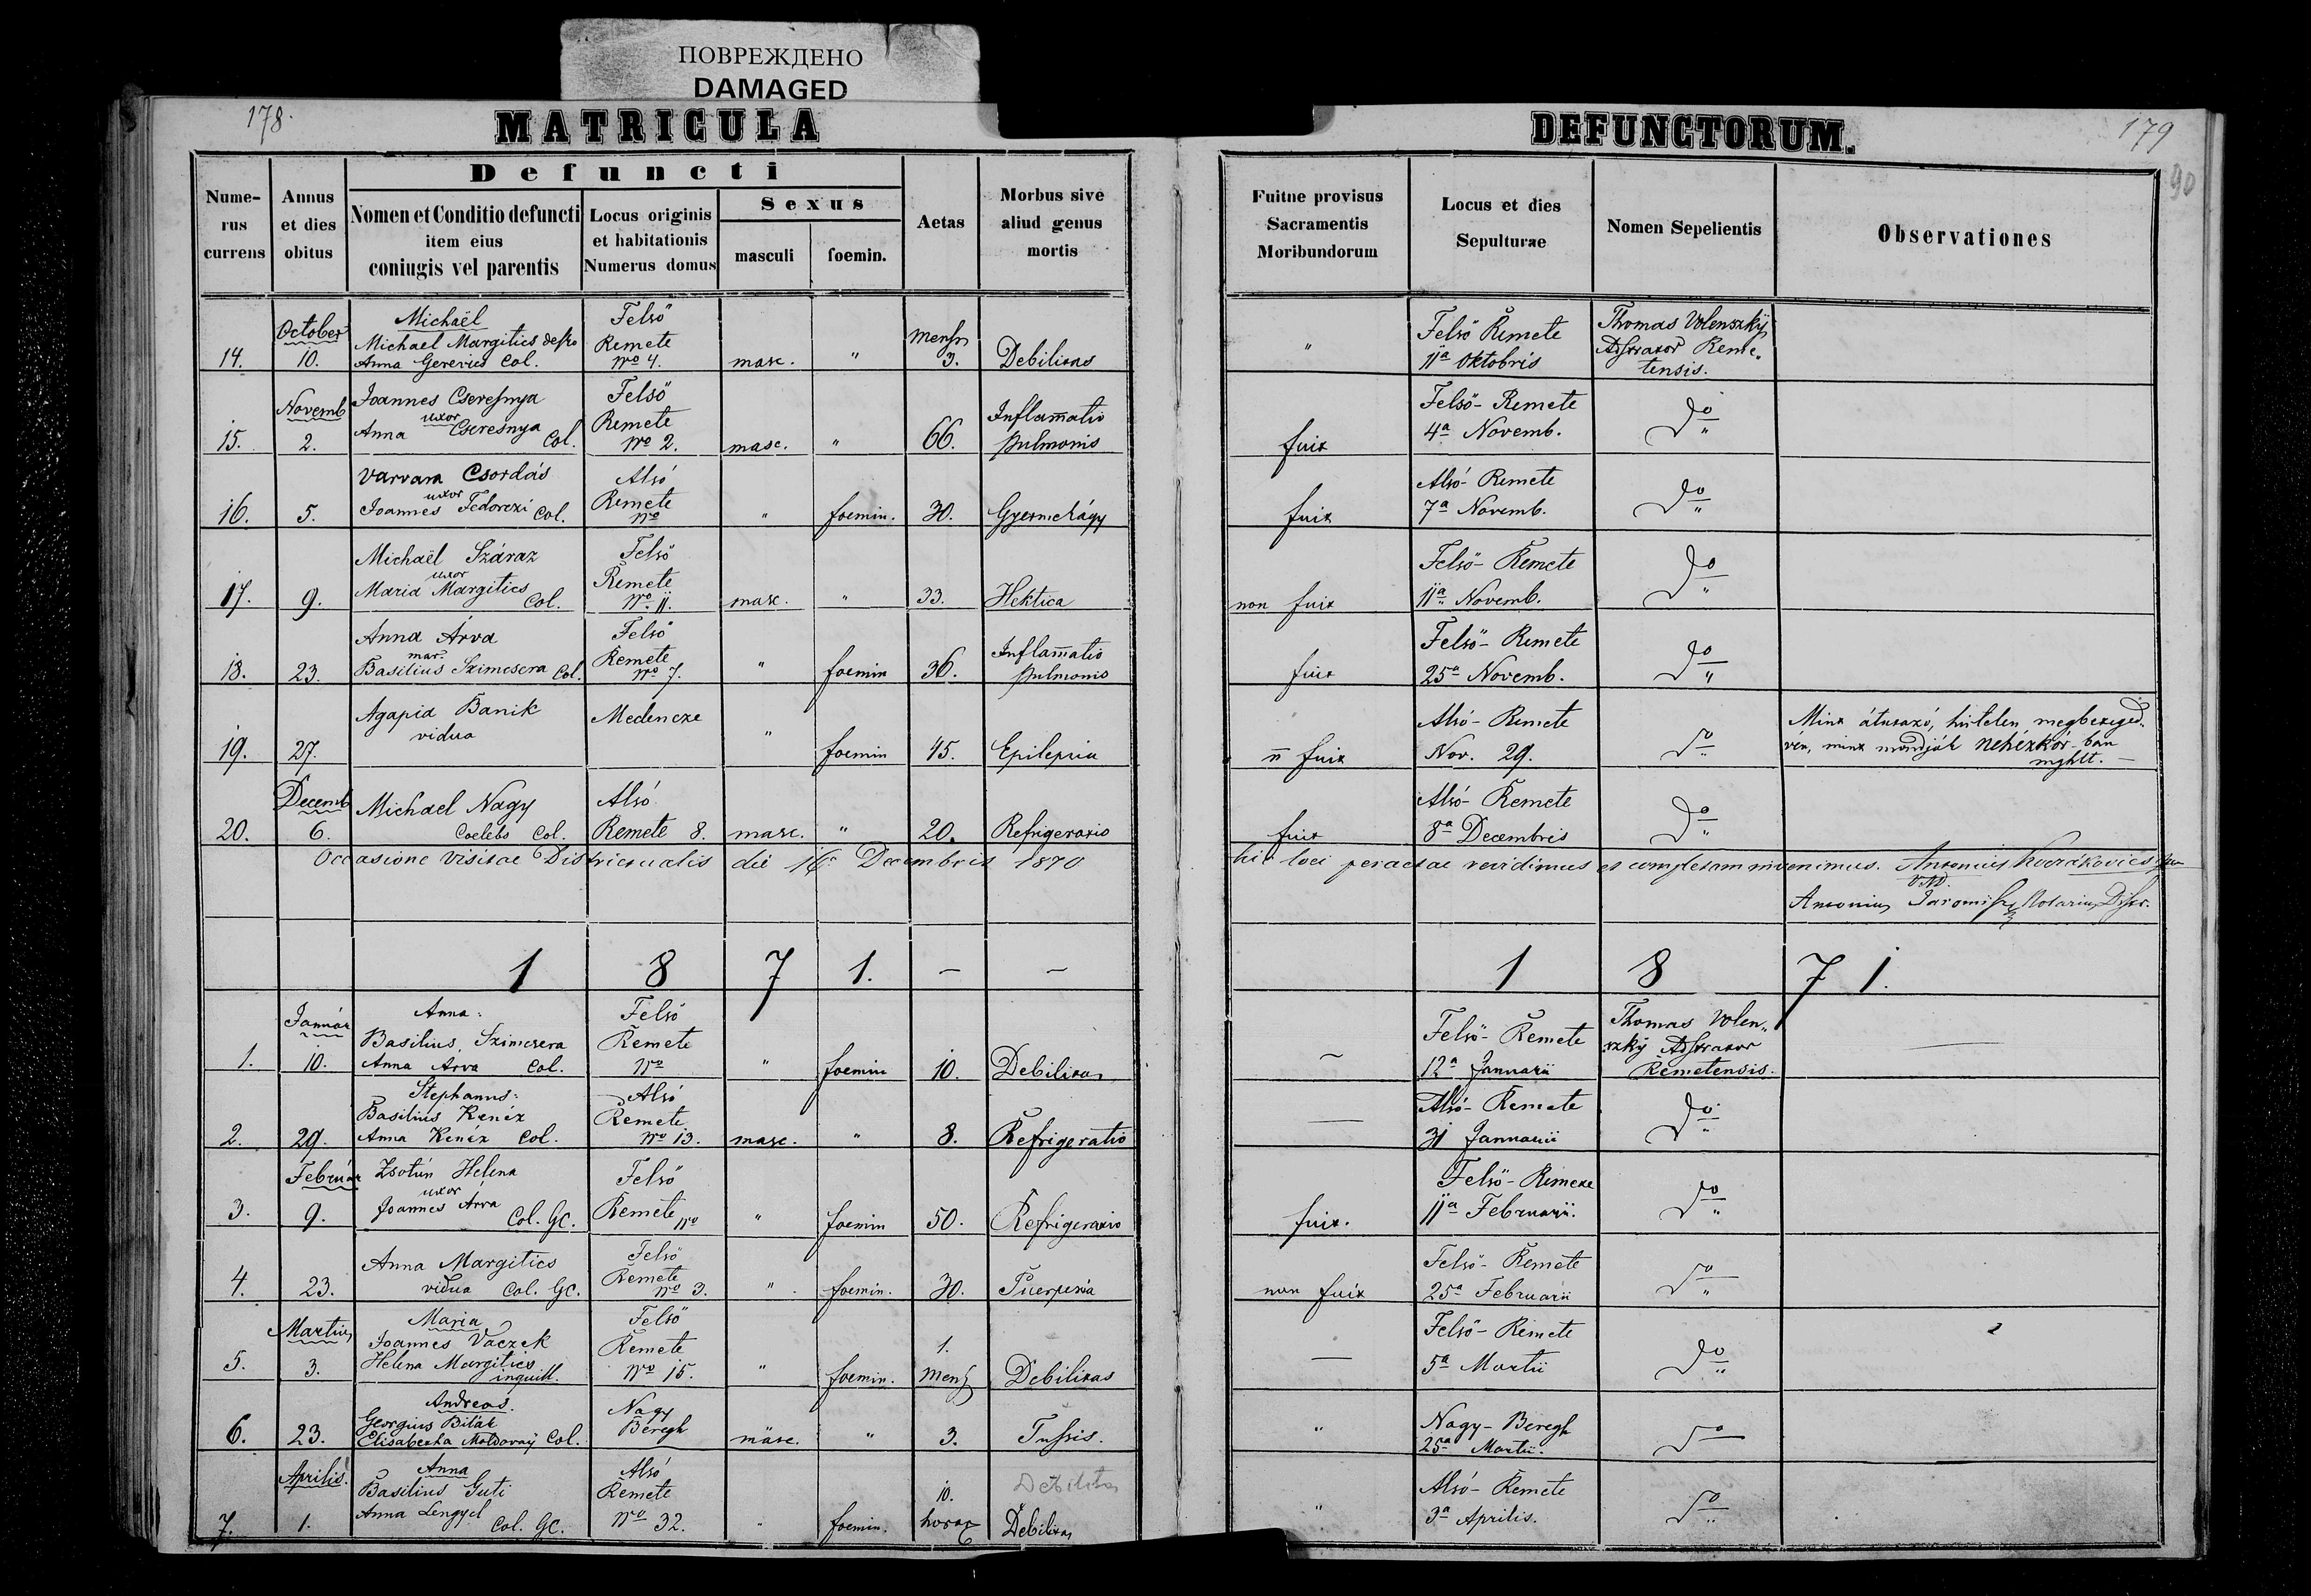 ПОВРЕЖДЕНО
DAMAGED
178.
MATRICULA
DEFUNCTORUM.
179
90
Defuncti
Nume-
rus
currens
Annus
et dies
obitus
Nomen et Conditio defuncti
item eius
coniugis vel parentis
Locus originis
et habitationis
Numerus domus
Sexus
masculi
foemin.
Aetas
Morbus sive
aliud genus
mortis
Fuitne provisus
Sacramentis
Moribundorum
Locus et dies
Sepulturae
Nomen Sepelientis
Observationes
14.
October
10.
Michaël
Michael Margitics
Anna Col.
Felső
Remete
No 4.
masc. "
mens
3.
Debilitas
"
Felső Remete
11a Oktobris
Thomas Volenszkÿ
Adstrator Reme-
tensis.
15.
Novemb
2.
Joannes Cseresnya
uxor
Anna Cseresnya Col.
Felső
Remete
No 2.
masc. "
66.
Inflam̄atio
pulmonis
fuit
Felső-Remete
4a Novemb.
do "
16.
5.
Varvara Csordás
uxor
Joannes Fedorczi Col.
Alsó
Remete
No
" foemin.
30.
fuit
Alsó-Remete
7a Novemb.
do "
17.
9.
Michaël Száraz
uxor
Maria Margitics Col.
Felső
Remete
No 11.
masc. "
33.
Hektica
non fuit
Felső-Remete
11a Novemb.
do "
18.
23.
Anna Árva
mar.
Basilius Szimcsera Col.
Felső
Remete
No 7.
" foemin
36.
Inflam̄atio
pulmonis
fuit
Felső-Remete
25a Novemb.
do "
19.
27.
Agapia Banik
vidua
Medencze
" foemin
45.
Epilepsia
n̄ fuit
Alsó-Remete
Nov. 29.
do "
Mint átutazó, hirtelen megbeteged-
vén, mint mondják nehézkór-ban
mghlt. —
20.
Decemb
6.
Michael Nagy
Coelebs Col.
Alsó
Remete 8.
masc. "
20.
Refrigeratio
fuit
Alsó-Remete
8a Decembris
do "
Occasione visitae Districtualis die 16a Decembris 1870 hic loci peractae revidimus et completam invenimus. Antonius
Antonius Notarius Distr.
1 8 7 1. — —
1 8 7 1.
1.
Január
10.
Anna:
Basilius Szimcsera
Anna Árva Col.
Felső
Remete
No
" foemin
10.
Debilitas
—
Felső-Remete
12a Januarii
Thomas Volen-
szkÿ Adstrator
Remetensis.
—
2.
29.
Stephanus:
Basilius Kenéz
Anna Kenéz Col.
Alsó
Remete
No 13.
masc. "
8.
Refrigeratio
—
Alsó-Remete
31 Januarii
do "
3.
Február
9.
Zsotún Helena
uxor
Joannes Árva
Col. GC.
Felső
Remete
No
" foemin
50.
Refrigeratio
fuit.
Felső-Remete
11a Februarii.
do "
4.
23.
Anna Margitics
vidua Col. GC.
Felső
Remete
No 3.
" foemin.
30.
Puerperia
non fuit
Felső-Remete
25a Februarii
do "
5.
Martius
3.
Maria
Joannes Vaczek
Helena Margitics
inquill.
Felső
Remete
No 15.
" foemin.
1.
mens
Debilitas
—
Felső-Remete
5a Martii
do "
6.
23.
Andreas.
Georgius Bilák
Elisabetha Moldavaÿ Col.
Nagy
Beregh
masc. "
3.
Tussis.
"
Nagy-Beregh
25a Martii.
do
7.
Aprilis
1.
Anna
Basilius Guti
Anna Lengyel
Col. GC.
Alsó
Remete
No 32.
" foemin.
10.
horae
Debilitas
Debilitas
"
Alsó-Remete
3a Aprilis.
do "